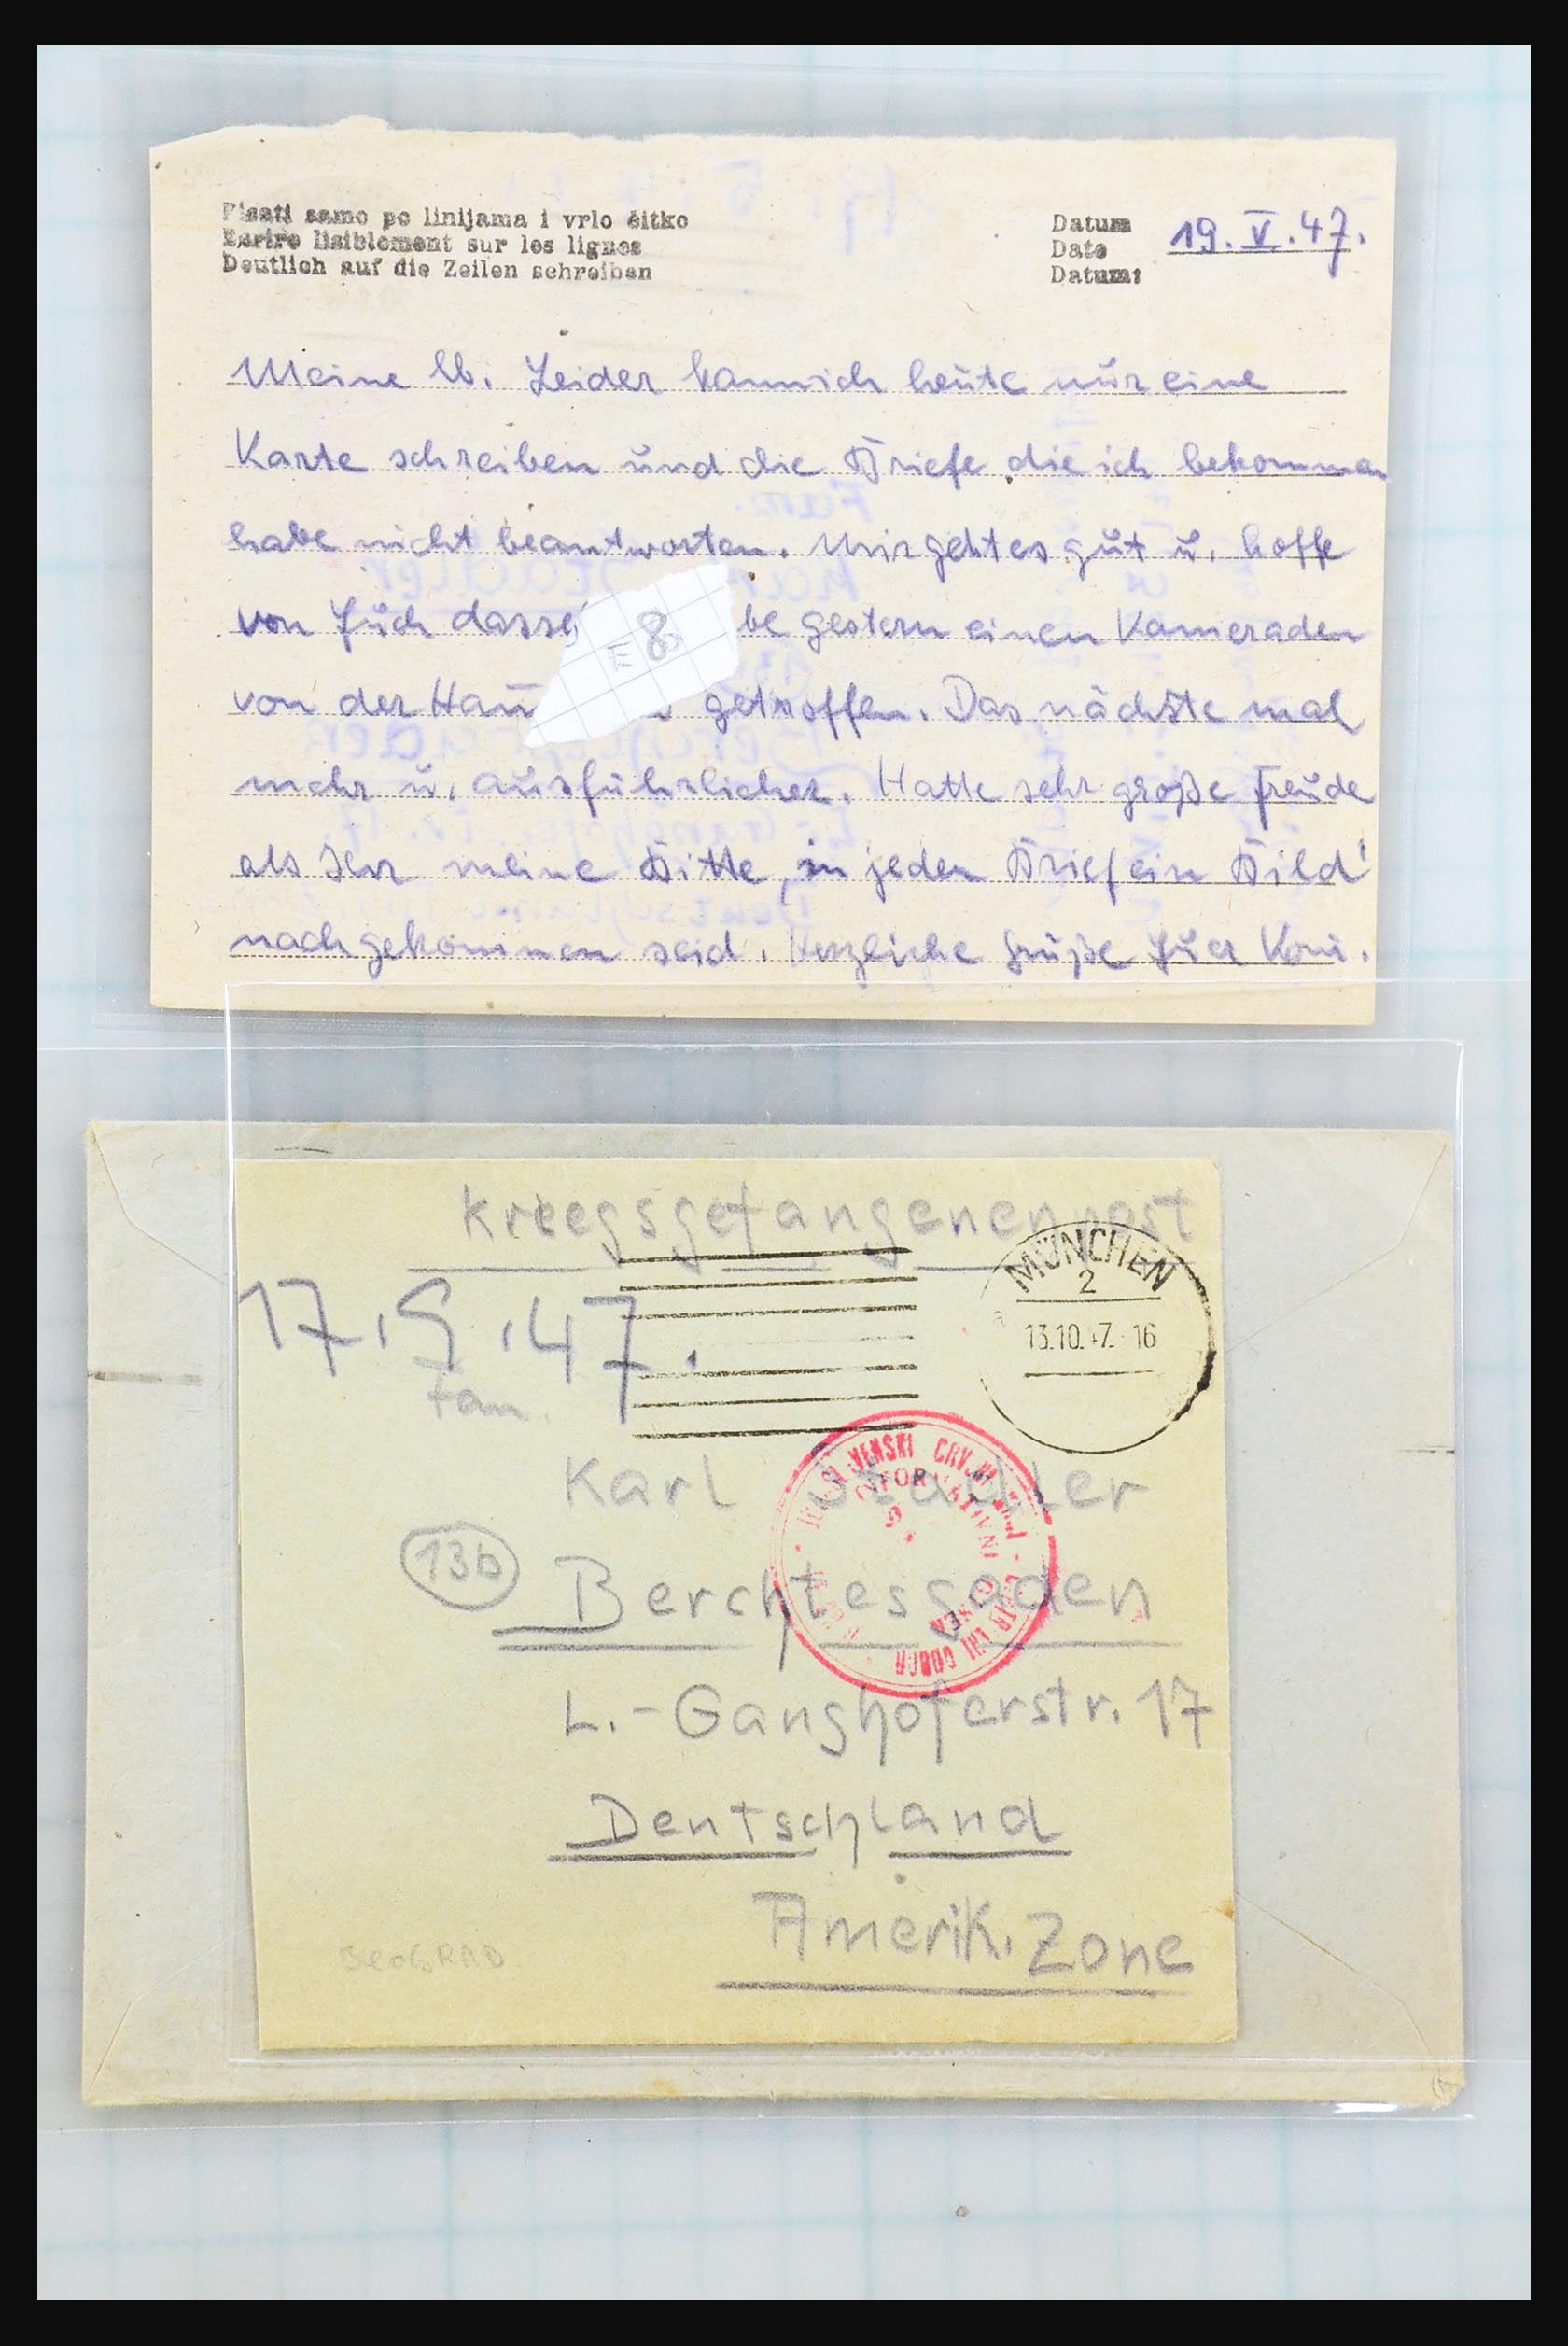 Pisati samo po linijama i vrlo čitko
Ecrire lisiblement sur les lignes
Deutlich auf die Zeilen schreiben
Datum
Date
Datum:
19. V. 47.
Meine lb. Leider kann ich heute nur eine
Karte schreiben und die Briefe die ich bekommen
habe nicht beantworten. Mir geht es gut u. hoffe
von Euch dasse be gestern einen Kameraden
von der Hau getroffen. Das nächste mal
mehr u. ausführlicher. Hatte sehr große Freude
als Ihr meine Bitte „in jeden Brief ein Bild"
nachgekommen seid. Herzliche Grüße Euer
E 8
Kriegsgefangenenpost
MÜNCHEN
2
a
13.10.47.-16
17.9.47.
Fam.
Karl Stadler
13b
Berchtesgaden
L.-Ganghoferstr. 17
Deutschland
Amerik. Zone
BEOGRAD